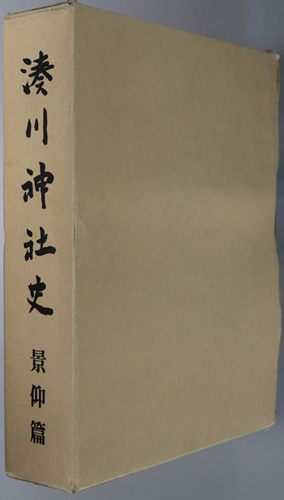 湊川神社史
景仰篇